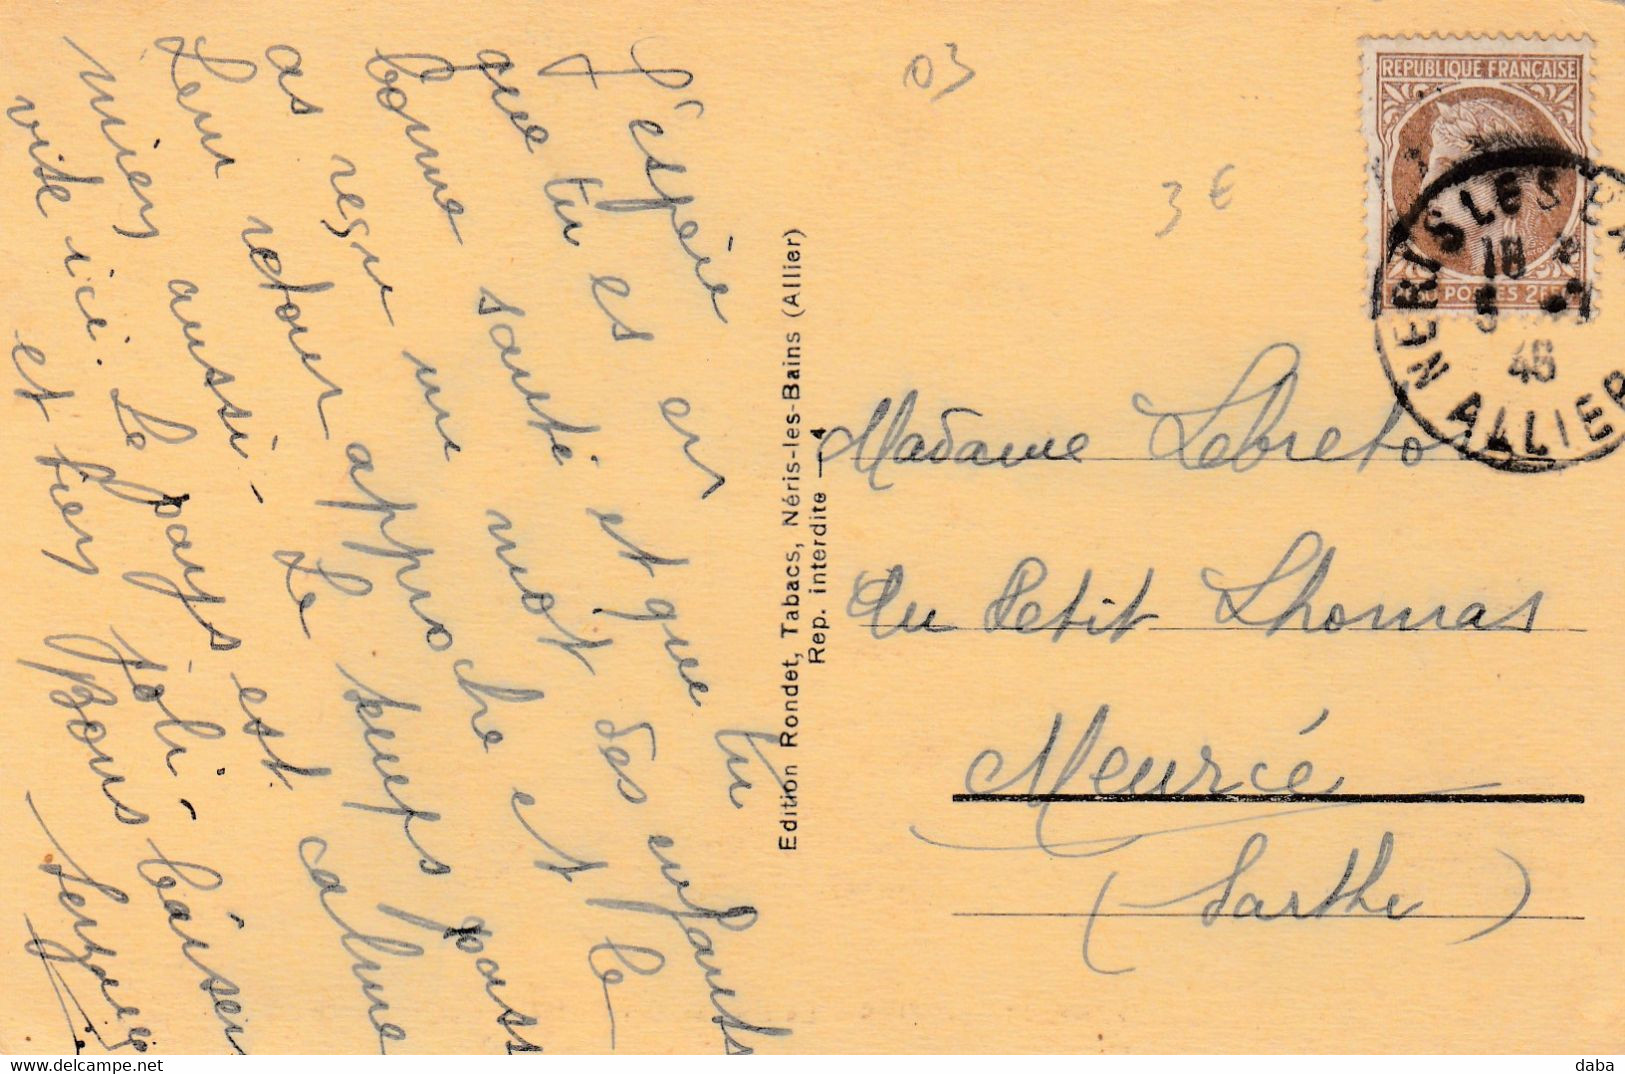 J'espère
que tu es en
bonne santé et que tu
as reçu un mot des enfants
Leur retour approche et le
mien aussi - Le temps passe
vite ici. Le pays est calme
et bien joli - Bons baisers
03
3 €
REPUBLIQUE FRANÇAISE
POSTES 2F50
NERIS LES BA
18
5
46
ALLIER
Edition Rondet, Tabacs, Néris-les-Bains (Allier)
Rep. interdite — 4
Madame Lebreton
Au Petit Thomas
Meurcé
(Sarthe)
www.delcampe.net
daba